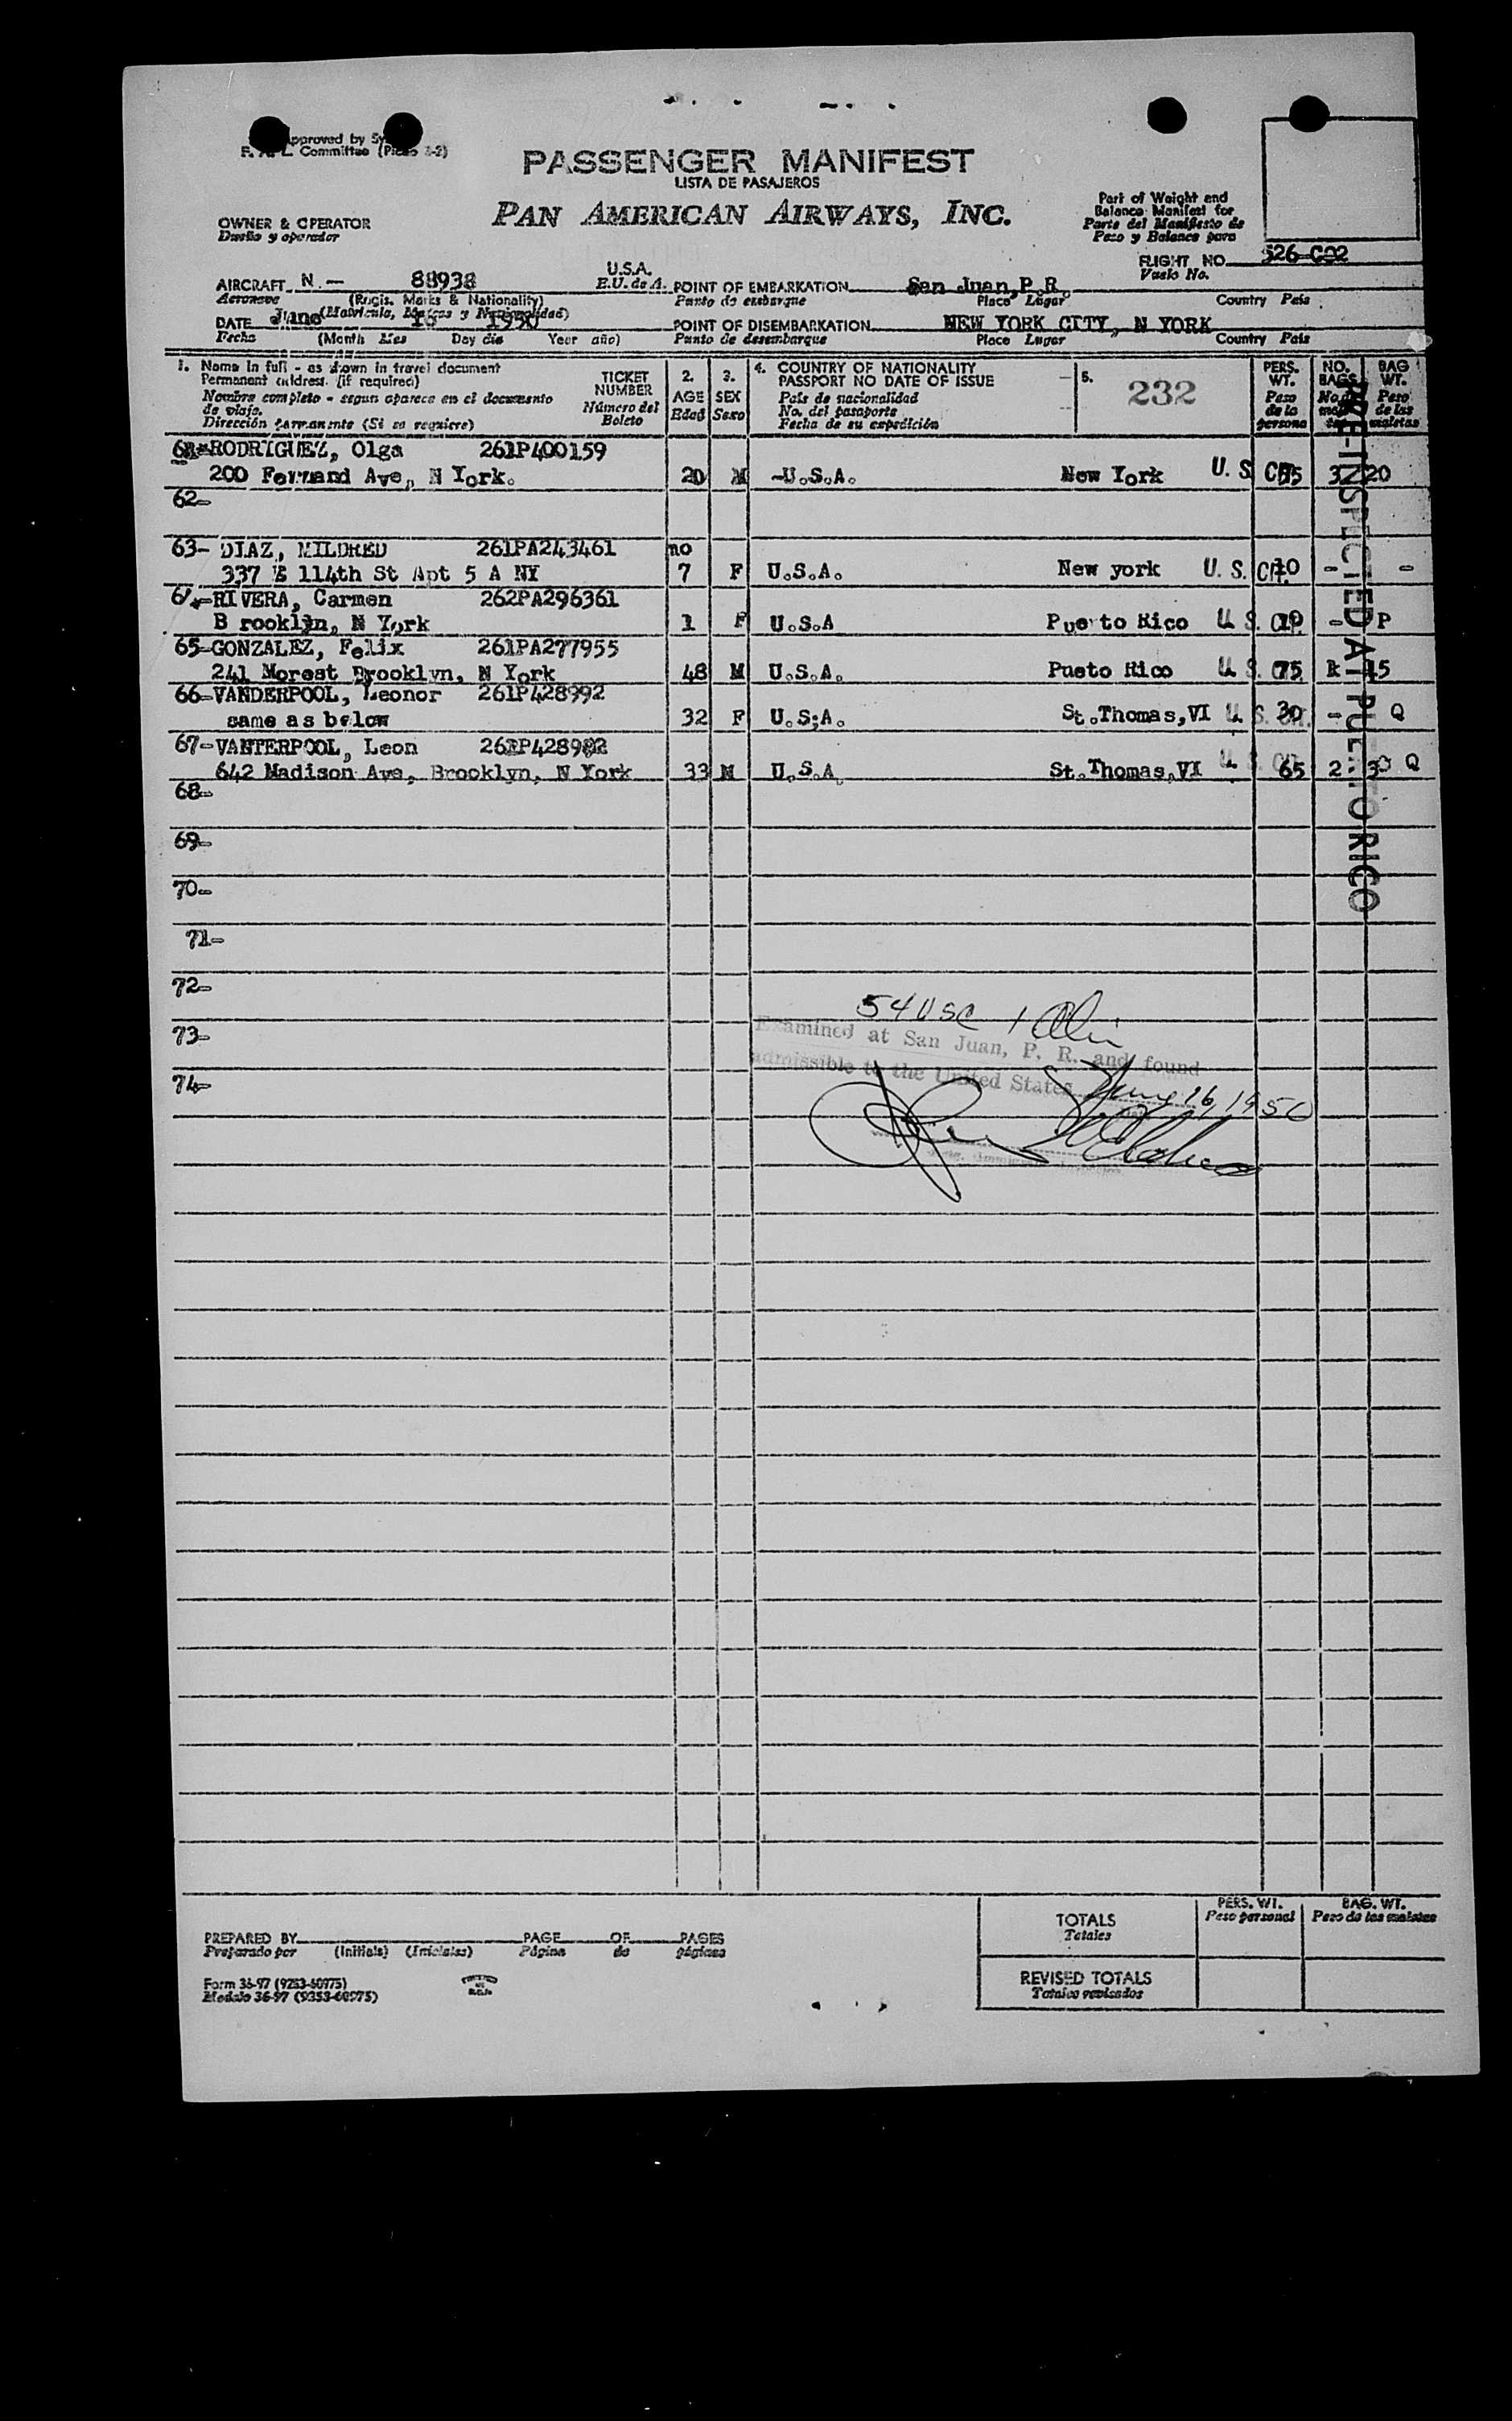 Approved by
F. A. L. Committee
PASSENGER MANIFEST
LISTA DE PASAJEROS
PAN AMERICAN AIRWAYS, INC.
OWNER & OPERATOR
Dueño y operador
Part of Weight and
Balance Manifest for
Parte del Manifiesto de
Peso y Balance para
FLIGHT NO. 526-C02
Vuelo No.
AIRCRAFT N.— 88938 U.S.A. POINT OF EMBARKATION San Juan, P.R.
Aeronave (Regis. Marks & Nationality) E.U. de A. Punto de embarque Place Lugar Country País
(Matricula, Marcas y Nacionalidad)
DATE June 16 1950 POINT OF DISEMBARKATION NEW YORK CITY, N YORK
Fecha (Month Mes Day día Year año) Punto de desembarque Place Lugar Country País
1. Name in full - as shown in travel document
Permanent address. (if required)
Nombre completo - segun aparece en el documento
de viaje.
Dirección permanente (Si se requiere)
TICKET
NUMBER
Número del
Boleto
2.
AGE
Edad
3.
SEX
Sexo
4. COUNTRY OF NATIONALITY
PASSPORT NO DATE OF ISSUE
País de nacionalidad
No. del pasaporte
Fecha de su expedición
5.
232
PERS.
WT.
Peso
de la
persona
NO.
BAGS
BAG
WT.
Peso
de las
maletas
PRE-INSPECTED AT PUERTO RICO
RODRIGUEZ, Olga 261P400159
200 Ave, N York. 20 M -U.S.A. New York U. S. 3 20
62-
63- DIAZ, MILDRED 261PA243461 no
337 E 114th St Apt 5 A NY 7 F U.S.A. New york U. S. CIT. 10 - -
64-RIVERA, Carmen 262PA296361
B rooklyn, N York 1 F U.S.A Puerto Rico U. S. 10 - P
65-GONZALEZ, Felix 261PA277955
241 Morest Brooklyn, N York 48 M U.S.A. Pueto Rico U. S. 75 15
66-VANDERPOOL, Leonor 261P428992
same as below 32 F U.S;A. St.Thomas,VI U. S. 30 - Q
67-VANTERPOOL, Leon
642 Madison Ave, Brooklyn, N York 33 M U.S.A. St.Thomas,VI U. S. 65 2 30 Q
68-
69-
70-
71-
72-
54 USC 1
73-
Examined at San Juan, P. R. and found
admissible to the United States June 16, 1950
74-
PREPARED BY PAGE OF PAGES
Preparado por (Initials) (Iniciales) Página de páginas
Form 36-97 (9253-60975)
Modelo 36-97 (9353-60975)
PERS. WT. BAG. WT.
Peso personal Peso de las maletas
TOTALS
Totales
REVISED TOTALS
Totales revisados